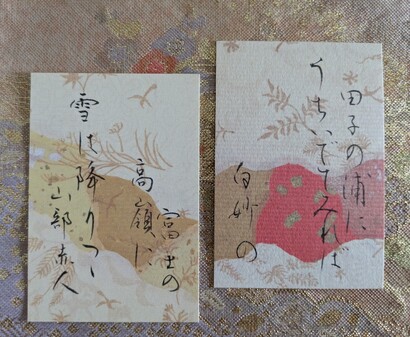 田子の浦に
うちいでてみれば
白妙の
富士の
高嶺に
雪は降りつゝ
山部赤人